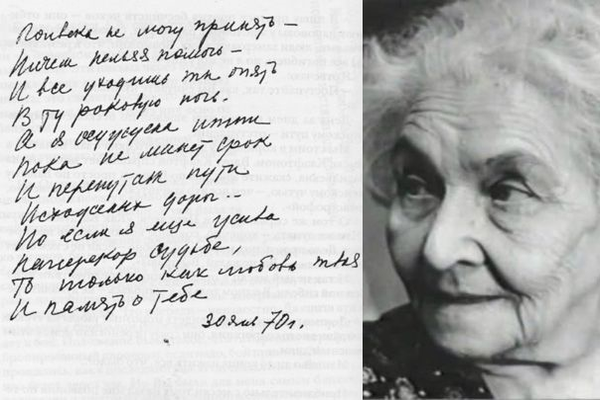 Полвека не могу принять –
Ничем нельзя помочь –
И все уходишь ты опять
В ту роковую ночь.
А я осуждена идти
Пока не минет срок
И перепутаны пути
Исхоженных дорог..
Но если я еще жива
Наперекор судьбе,
То только как любовь твоя
И память о тебе
30 янв 70 г.